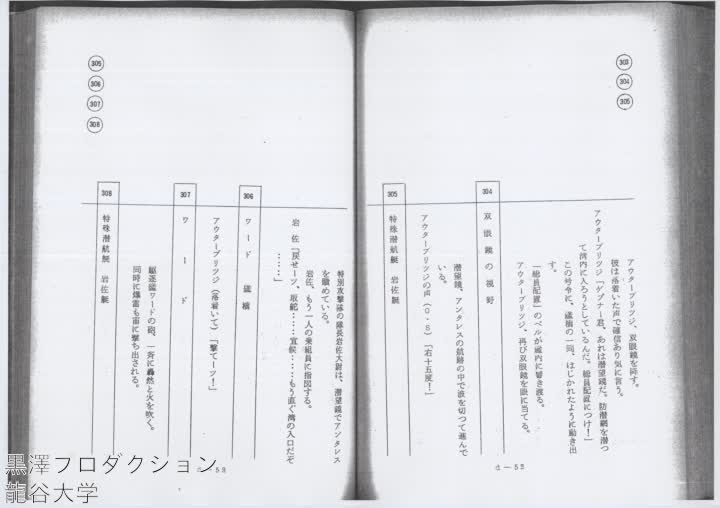 303
304
305
アウターブリッジ、双眼鏡を戻す。
彼は落着いた声で確信あり気に言う。
アウターブリッジ「ゲプナー君、あれは潜望鏡だ。防潜網を潜っ
て湾内に入ろうとしているんだ。総員配置につけ!」
この号令に、艦橋の一同、はじかれたように動き出
す。
「総員配置」のベルが艦内に響き渡る。
アウターブリッジ、再び双眼鏡を眼に当てる。
304 双眼鏡の視野
潜望鏡、アンタレスの航跡の中で波を切つて進んで
いる。
アウターブリッジの声(O・S)「右十五度!」
305 特殊潜航艇 岩佐艇
d—52
305
306
307
308
特別攻撃隊の隊長岩佐大尉は、潜望鏡でアンタレス
を眺めている。
岩佐、もう一人の乗組員に指図する。
岩佐「戻せーッ、取舵……宜候……もう直ぐ湾の入口だぞ
……」
306 ワード 艦橋
アウターブリッジ(落着いて)「撃てーッ!」
307 ワード
駆逐艦ワードの砲、一斉に轟然と火を吹く。
同時に爆雷も宙に撃ち出される。
308 特殊潜航艇 岩佐艇
d—53
黒澤プロダクション
龍谷大学